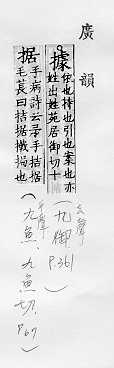 廣韻
據依也持也引也案也亦
姓出姓苑居御切十
去聲
(九御 P.361)
据手病詩云予手拮据
毛萇曰拮据撠挶也
平聲
(九魚.九魚切. P.67)